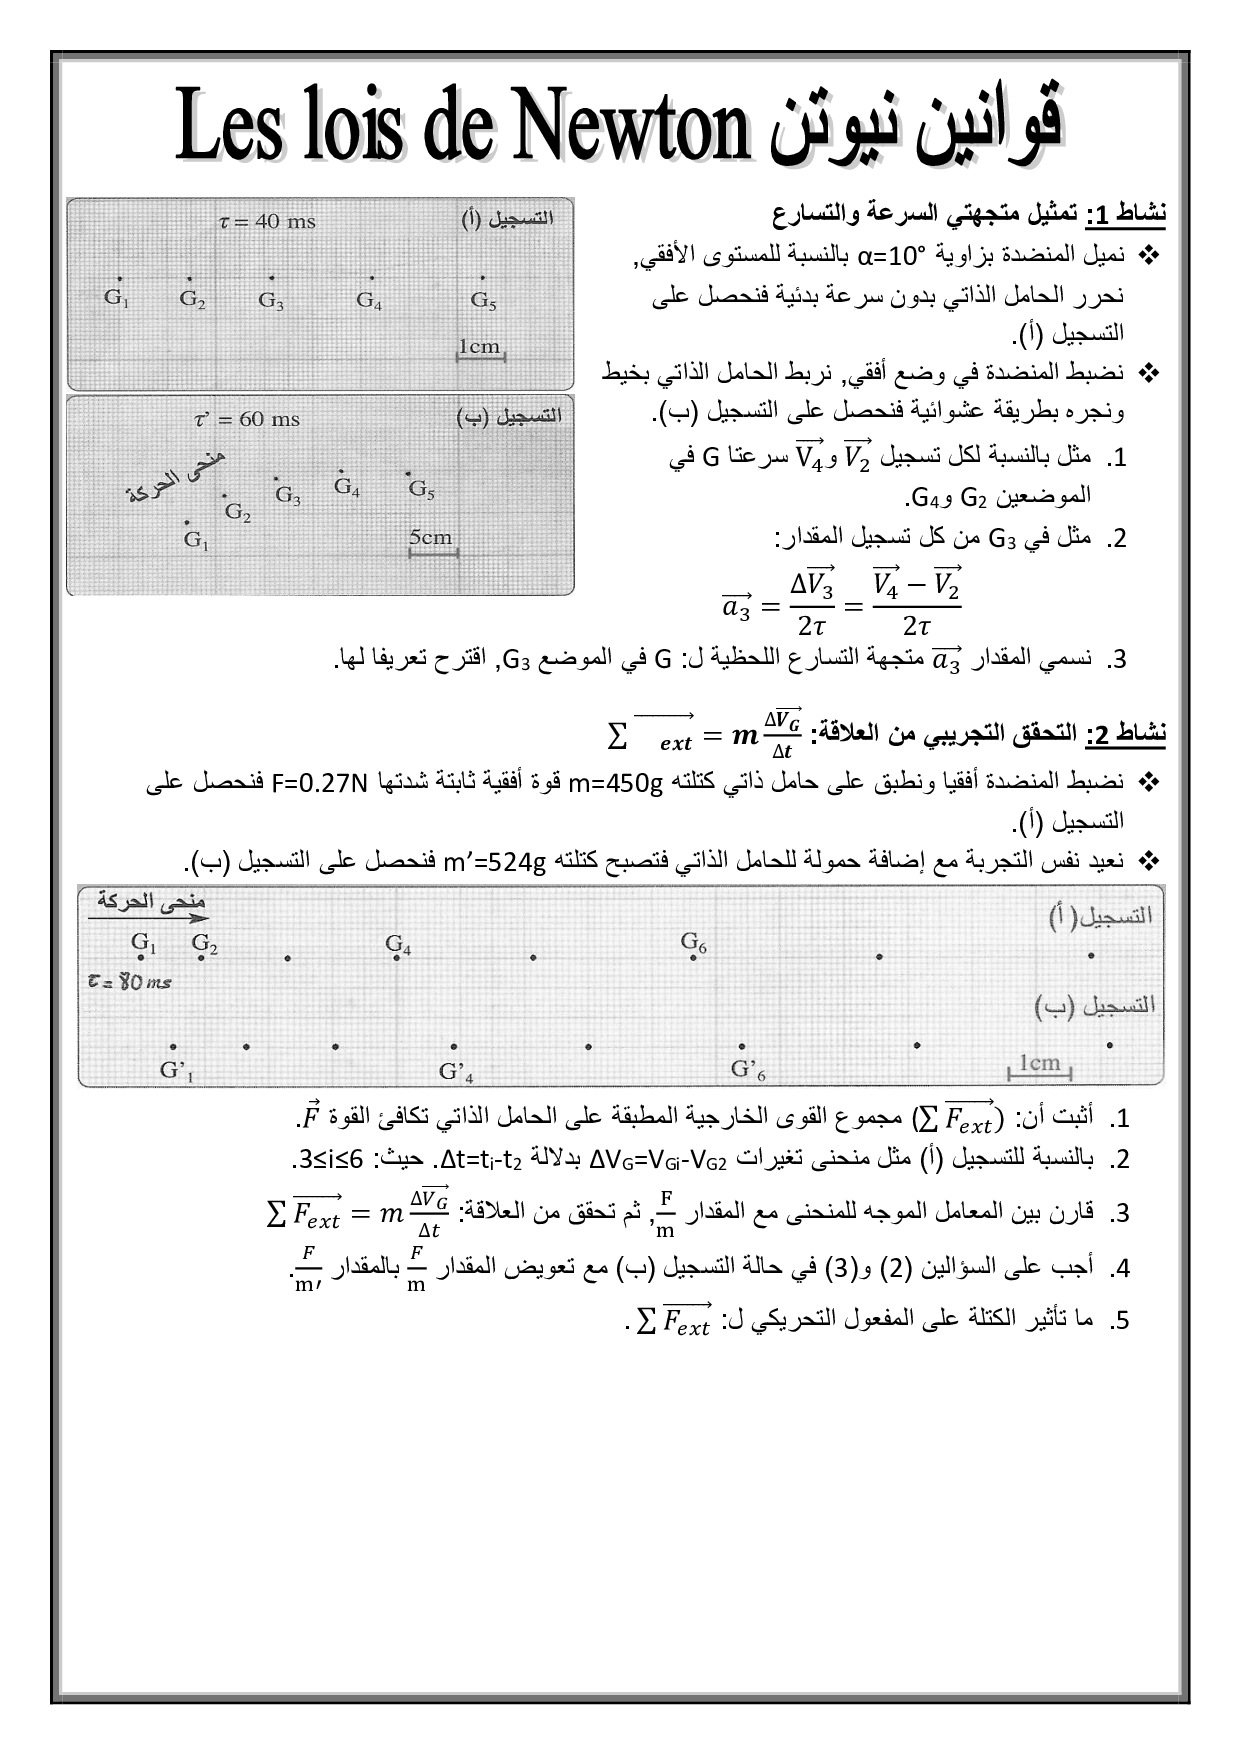 قوانين نيوتن Les lois de Newton
نشاط 1: تمثيل متجهتي السرعة والتسارع
❖ نميل المنضدة بزاوية α=10° بالنسبة للمستوى الأفقي,
نحرر الحامل الذاتي بدون سرعة بدئية فنحصل على
التسجيل (أ).
❖ نضبط المنضدة في وضع أفقي, نربط الحامل الذاتي بخيط
ونجره بطريقة عشوائية فنحصل على التسجيل (ب).
1. مثل بالنسبة لكل تسجيل $\overrightarrow{V_2}$ و $\overrightarrow{V_4}$ سرعتا G في
الموضعين G₂ وG₄.
2. مثل في G₃ من كل تسجيل المقدار:
$\overrightarrow{a_3} = \frac{\Delta\overrightarrow{V_3}}{2\tau} = \frac{\overrightarrow{V_4} - \overrightarrow{V_2}}{2\tau}$
التسجيل (أ)
τ = 40 ms
G₁ G₂ G₃ G₄ G₅
1cm
التسجيل (ب)
τ' = 60 ms
منحى الحركة
G₁ G₂ G₃ G₄ G₅
5cm
3. نسمي المقدار $\overrightarrow{a_3}$ متجهة التسارع اللحظية ل: G في الموضع G₃, اقترح تعريفا لها.
نشاط 2: التحقق التجريبي من العلاقة: $\sum \overrightarrow{\quad_{ext}} = m\frac{\Delta\overrightarrow{V_G}}{\Delta t}$
❖ نضبط المنضدة أفقيا ونطبق على حامل ذاتي كتلته m=450g قوة أفقية ثابتة شدتها F=0.27N فنحصل على
التسجيل (أ).
❖ نعيد نفس التجربة مع إضافة حمولة للحامل الذاتي فتصبح كتلته m’=524g فنحصل على التسجيل (ب).
منحى الحركة
التسجيل( أ)
G₁ G₂ G₄ G₆
τ = 80 ms
التسجيل (ب)
G'₁ G'₄ G'₆
1cm
1. أثبت أن: ($\sum \overrightarrow{F_{ext}}$) مجموع القوى الخارجية المطبقة على الحامل الذاتي تكافئ القوة $\vec{F}$.
2. بالنسبة للتسجيل (أ) مثل منحنى تغيرات ΔV_G=V_Gi-V_G2 بدلالة Δt=tᵢ-t₂. حيث: 3≤i≤6.
3. قارن بين المعامل الموجه للمنحنى مع المقدار $\frac{F}{m}$, ثم تحقق من العلاقة: $\sum \overrightarrow{F_{ext}} = m\frac{\Delta\overrightarrow{V_G}}{\Delta t}$
4. أجب على السؤالين (2) و(3) في حالة التسجيل (ب) مع تعويض المقدار $\frac{F}{m}$ بالمقدار $\frac{F}{m'}$.
5. ما تأثير الكتلة على المفعول التحريكي ل: $\sum \overrightarrow{F_{ext}}$ .